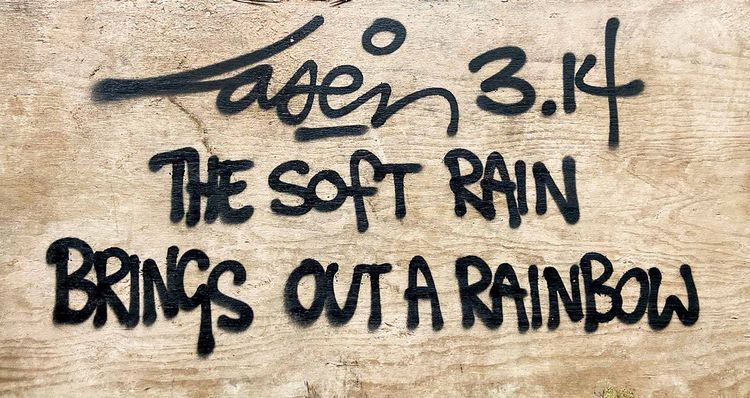 Laser 3.14
THE SOFT RAIN
BRINGS OUT A RAINBOW